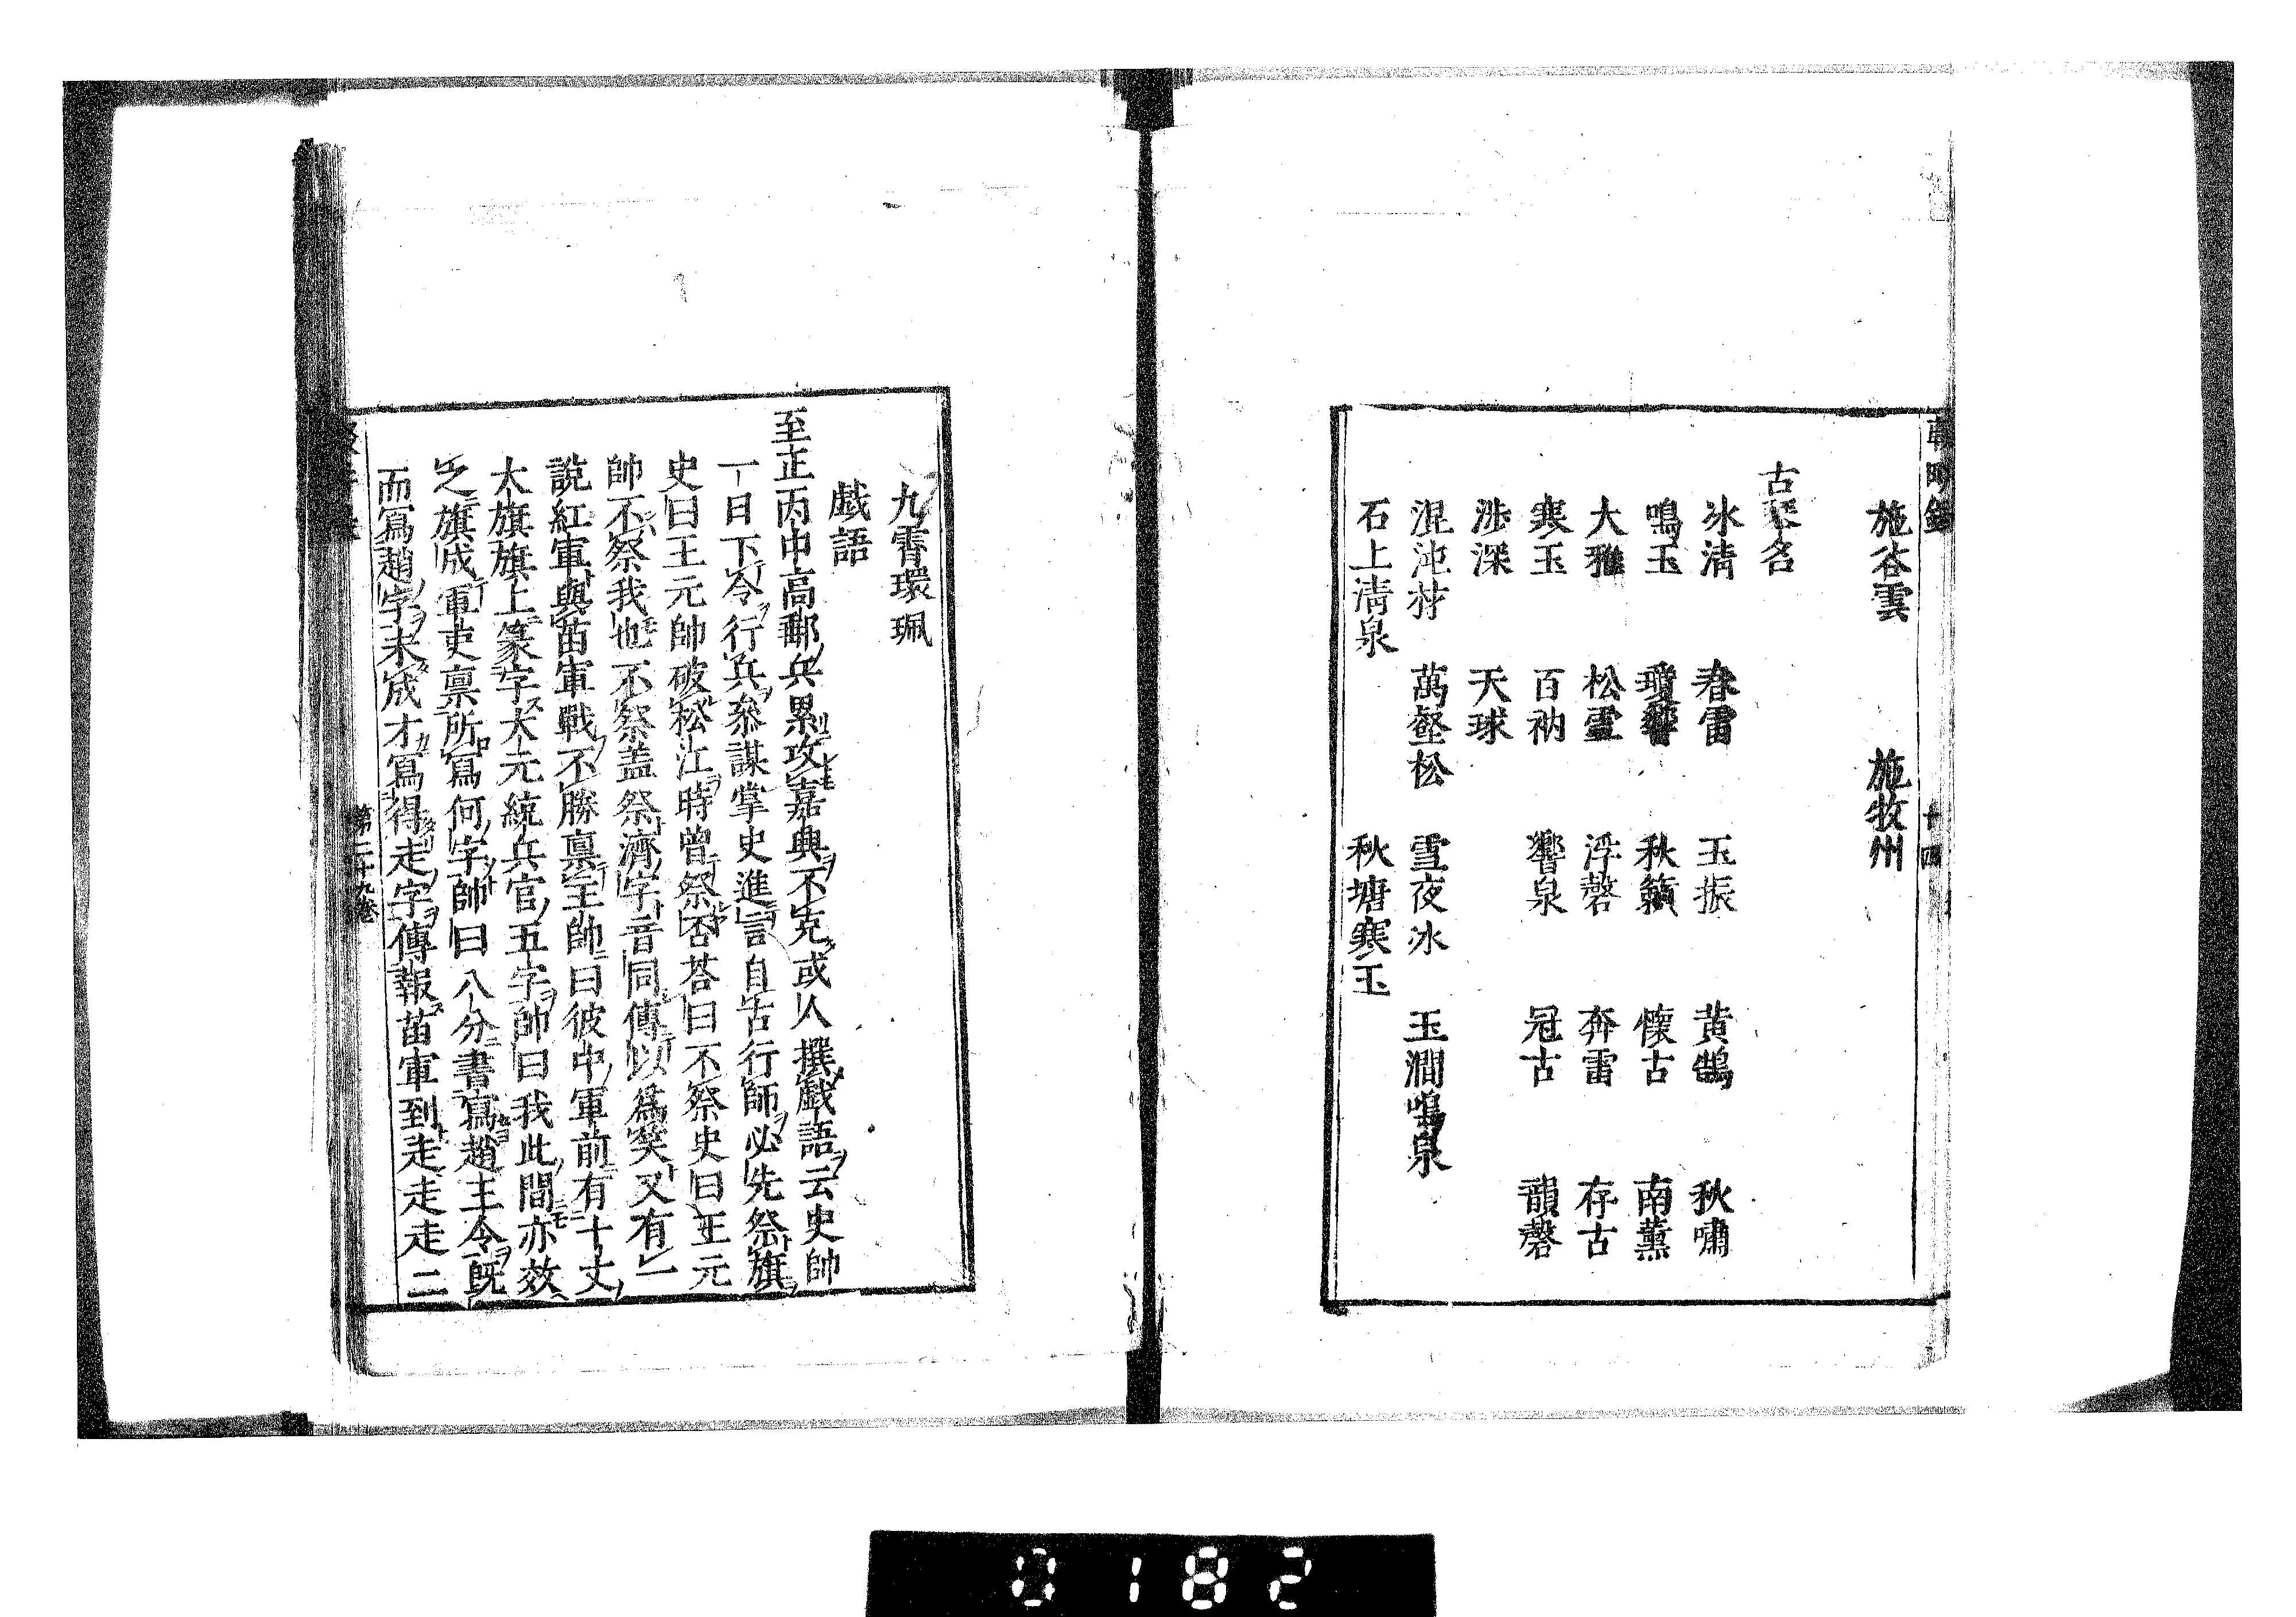 施谷雲　施牧州
古琴名
冰清　春雷　玉振　黃鵠　秋嘯
鳴玉　瓊響　秋籟　懷古　南薰
大雅　松雪　浮磬　奔雷　存古
寒玉　百衲　響泉　冠古　韻磬
涉深　天球
混沌材　萬壑松　雪夜冰　玉澗鳴泉
石上清泉　秋塘寒玉
十四
九霄環珮
戲語
至正丙申高郵兵累攻嘉興不克或人撰戲語云史帥
一日下令行兵叅謀掌史進言自古行師必先祭旗
史曰王元帥破松江時曾祭否荅曰不祭史曰王元
帥不祭我也不祭盖祭濟字音同傳以爲笑又有一
說紅軍與苗軍戰不勝禀主帥曰彼中軍前有十丈
大旗旗上篆字大元統兵官五字帥曰我此間亦效
之旗成軍吏禀所寫何字帥曰八分書寫趙王令旣
而寫趙字未成才寫得走字傳報苗軍到走走走二
第二十九卷
0182